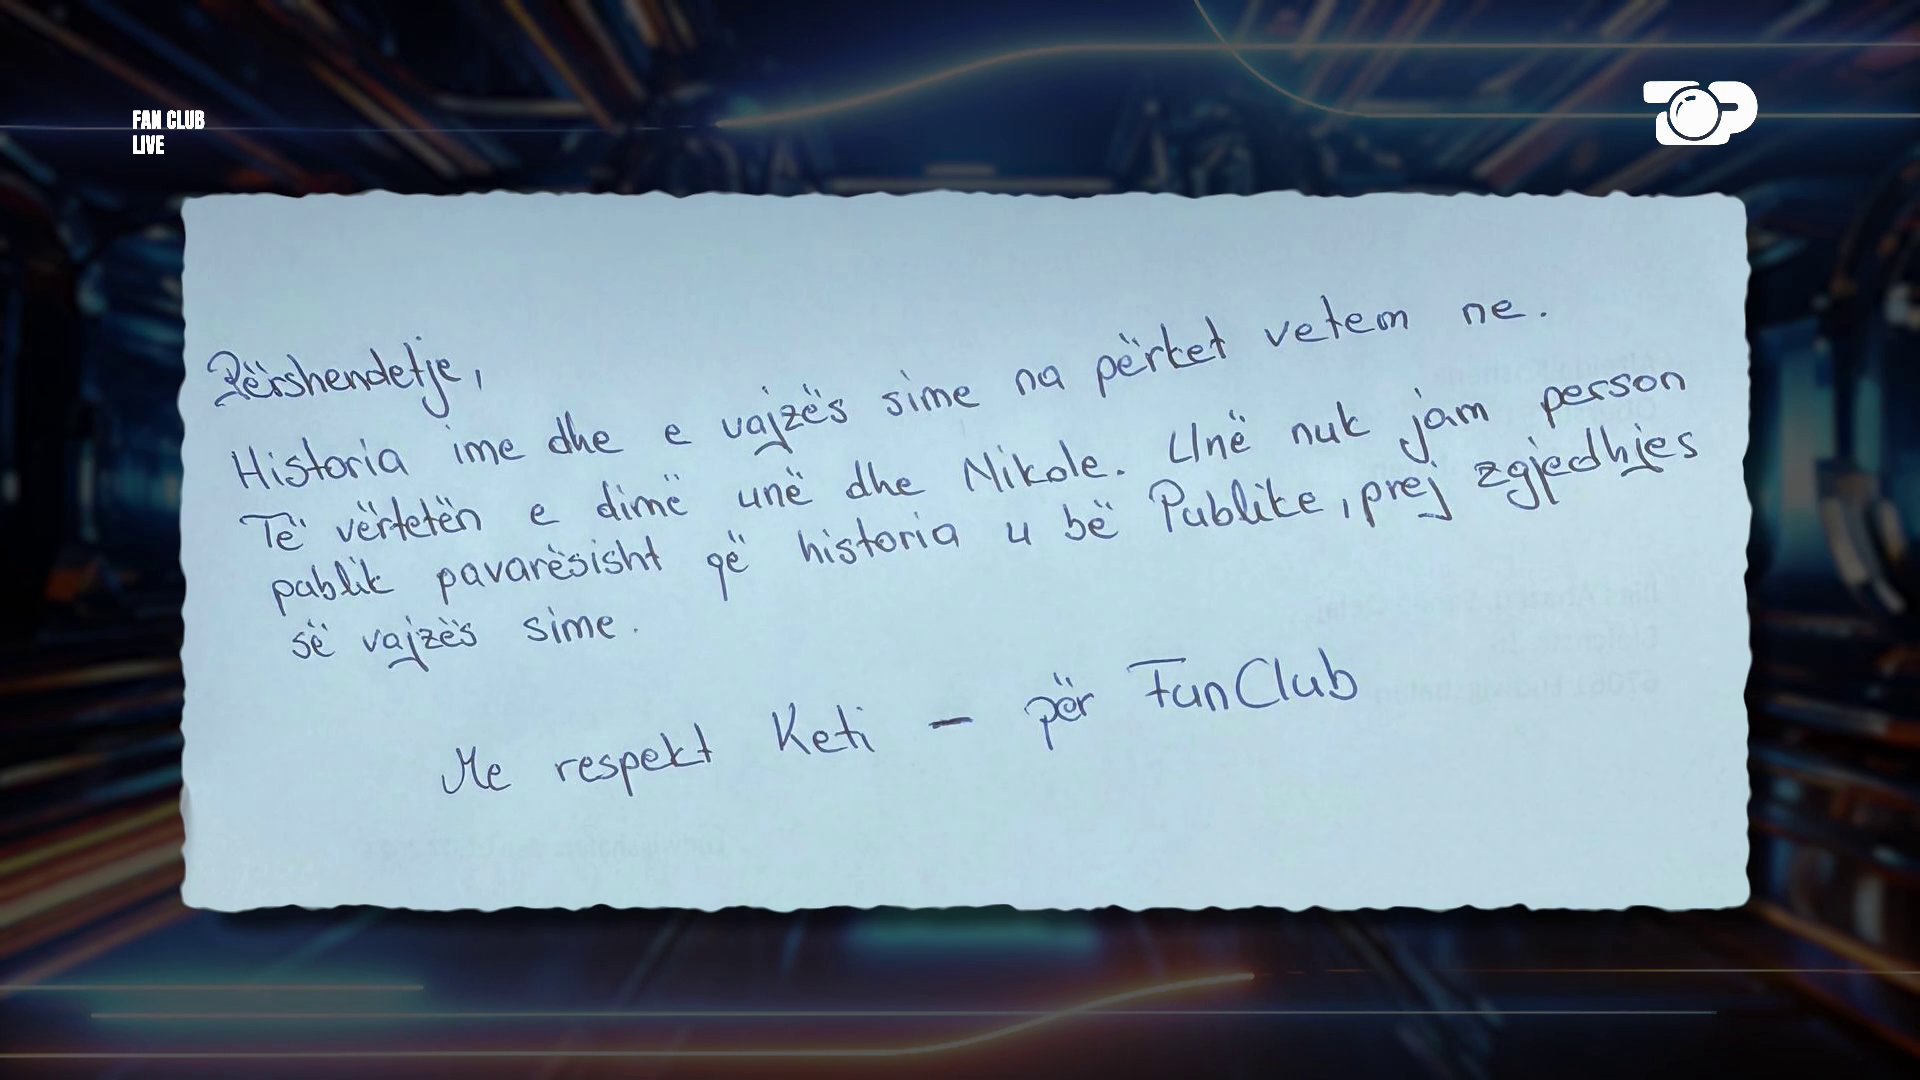 FAN CLUB
LIVE
Përshendetje,
Historia ime dhe e vajzës sime na përket vetem ne.
Të vërtetën e dimë unë dhe Nikole. Unë nuk jam person
publik pavarësisht që historia u bë Publike, prej zgjedhjes
së vajzës sime.
Me respekt Keti - për FanClub